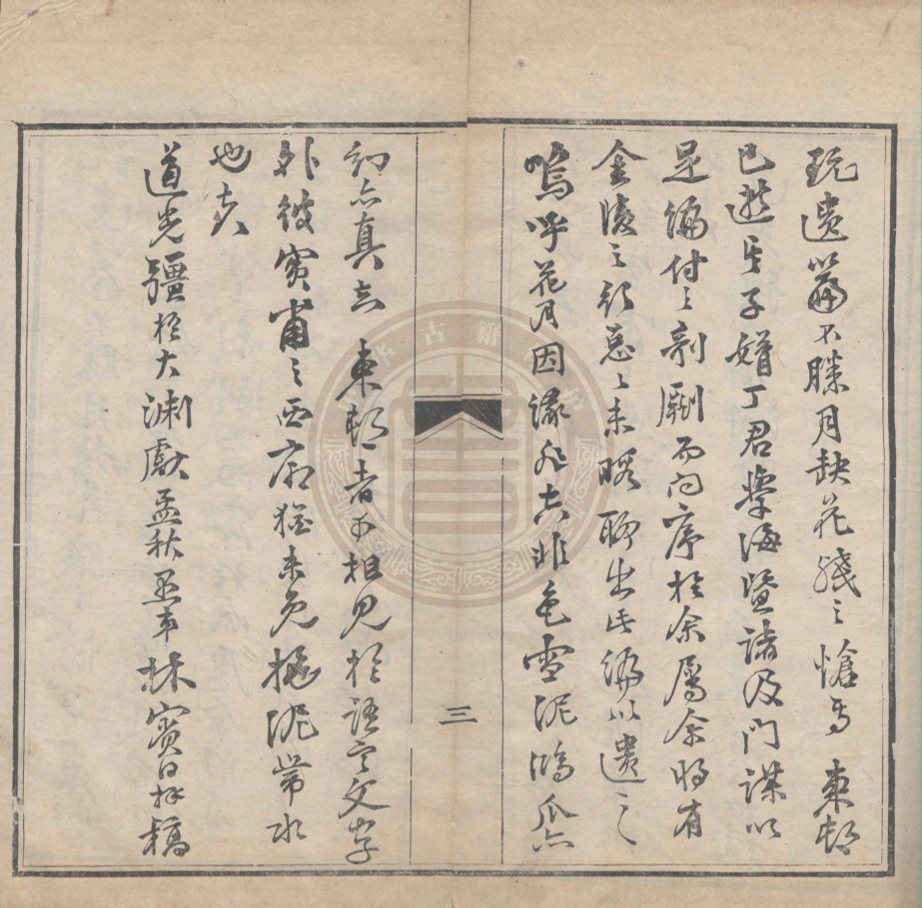 玩遺篇不勝月缺花殘之愴焉 東邨
已逝其子婿丁君學海暨諸及門謀以
是編付之剞劂而問序於余屬余將有
金陵之行怱〻未暇聊出此編以遺之
嗚呼花月因緣非色雪泥鴻爪亦
幻亦真 東邨者可相見於語言文字
外彼實甫之西廂猶未免拖泥帶水
也夫
三
道光彊梧大淵獻孟秋愚弟林賓日拜稿